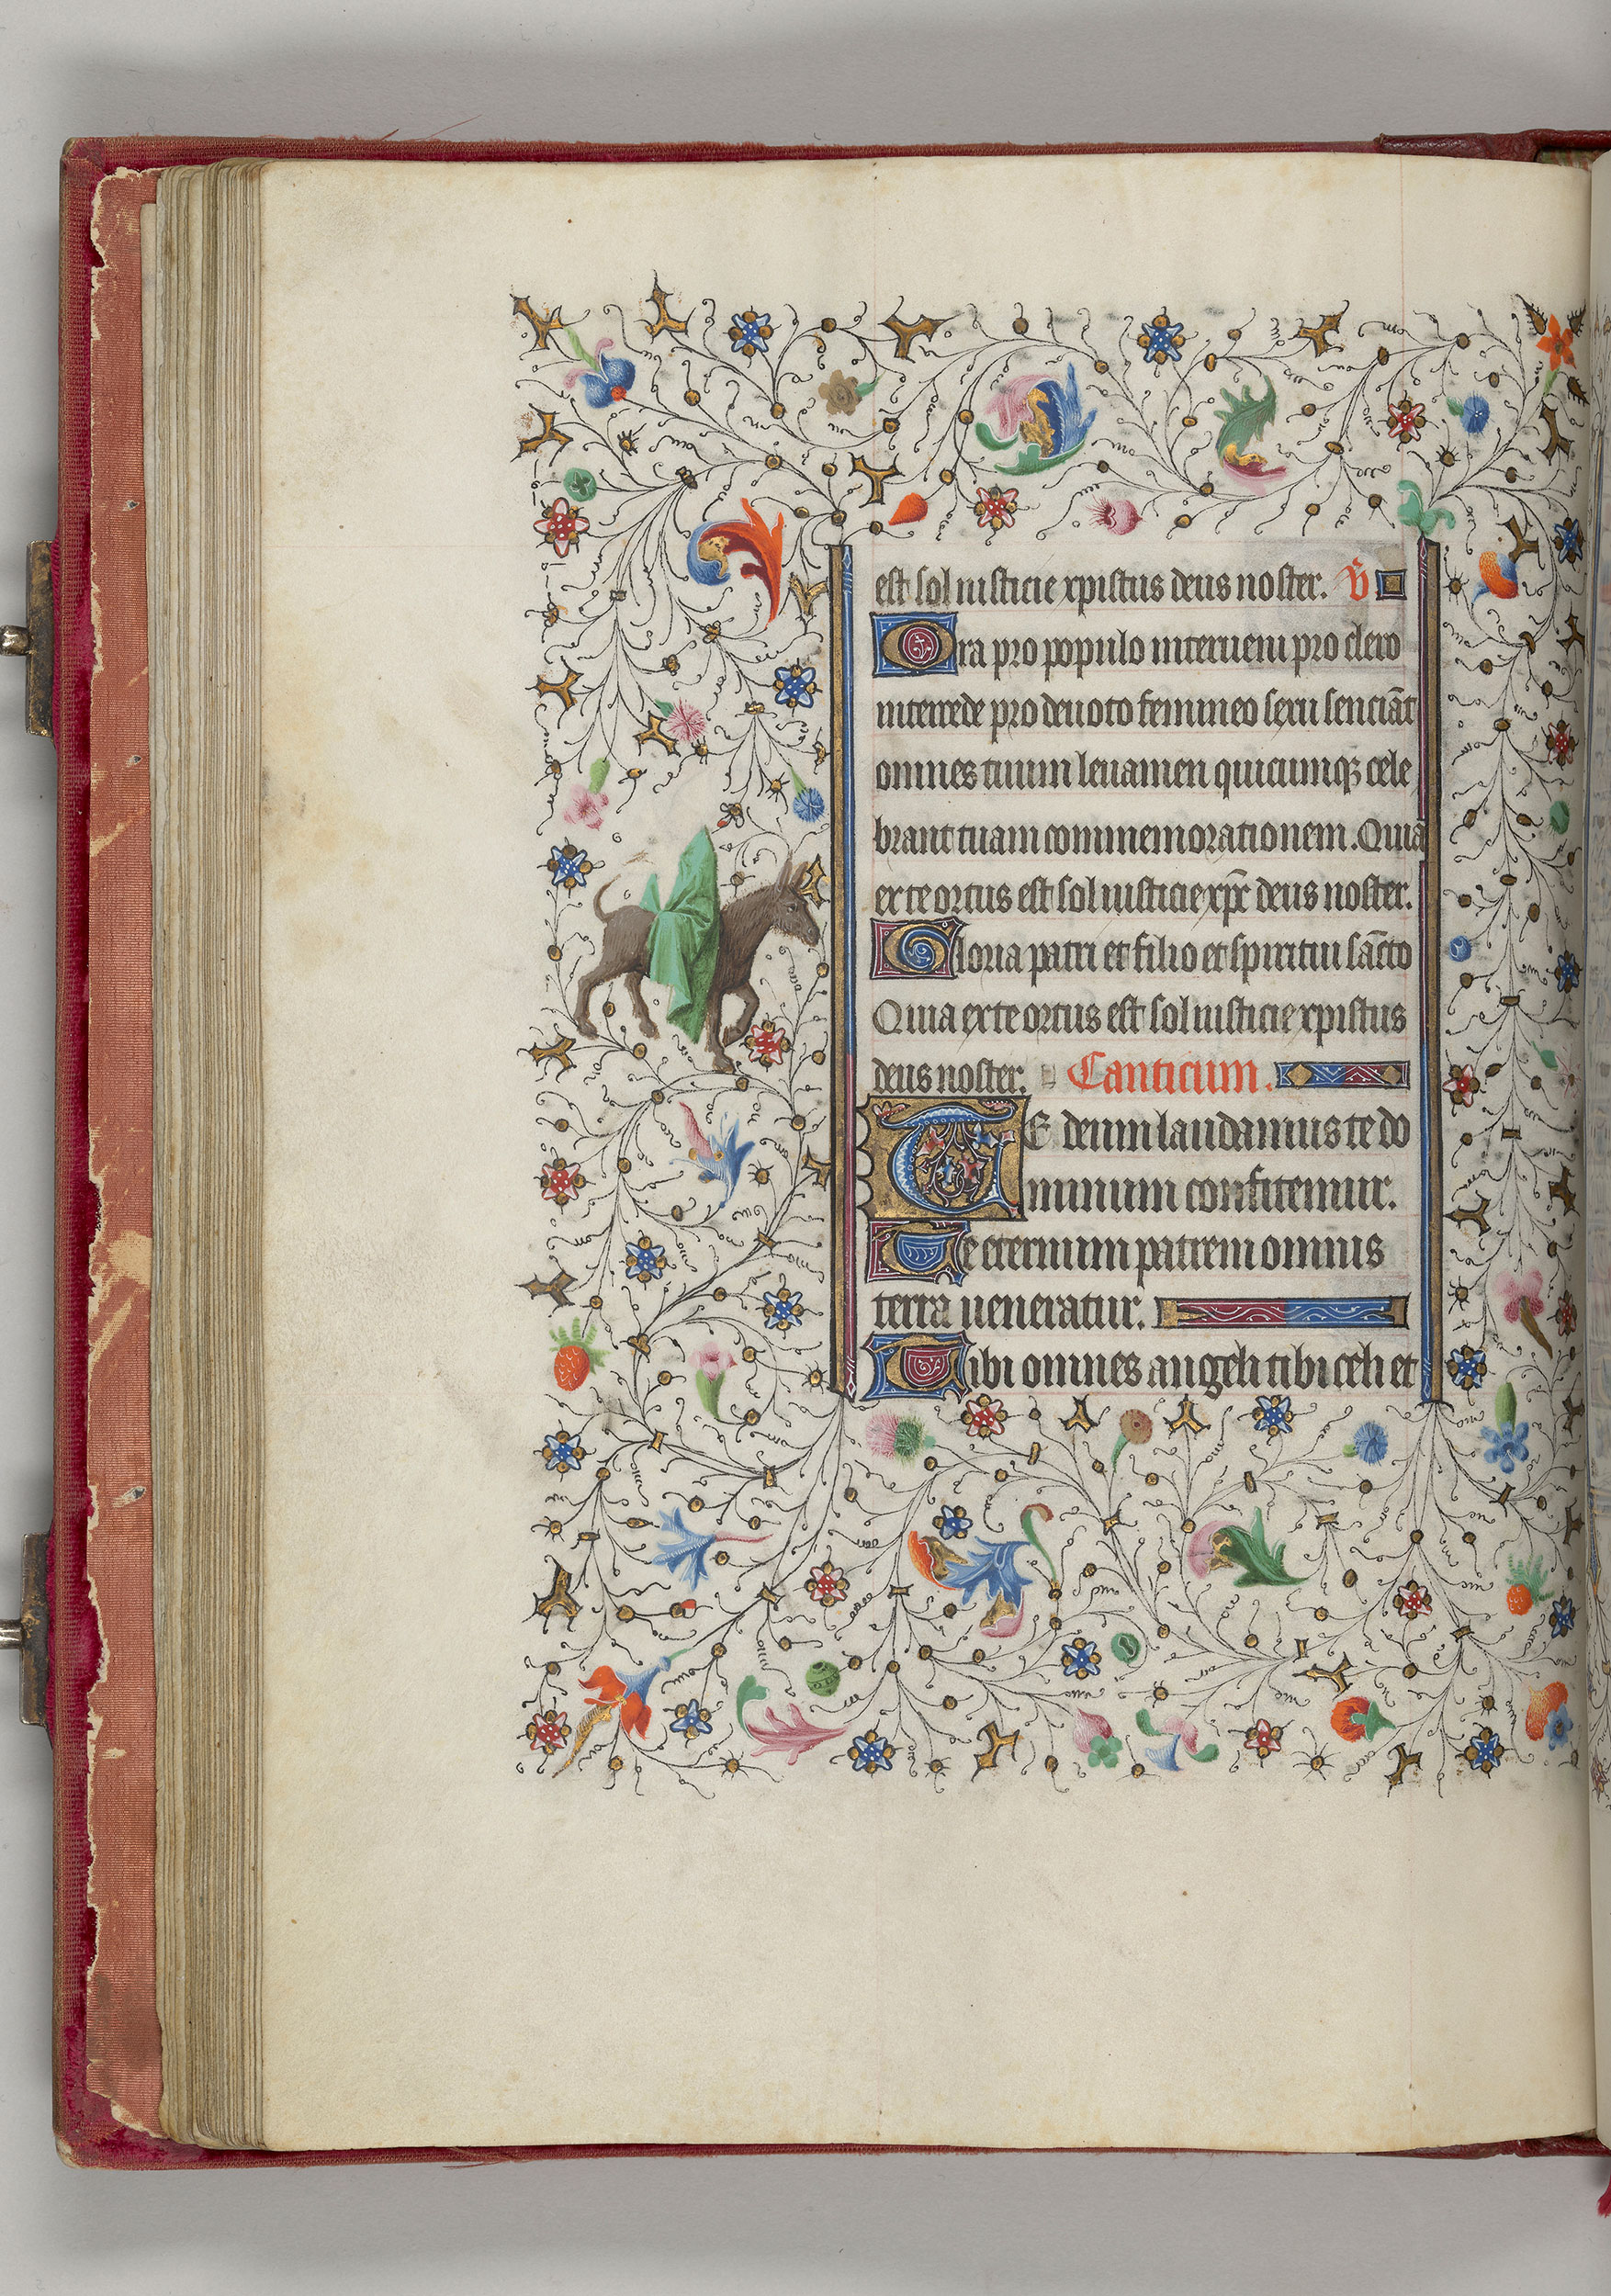 est sol iusticie xpistus deus noster. V̄
Ora pro populo interueni pro clero
intercede pro deuoto femineo sexu senciāt
omnes tuum leuamen quicumqȝ cele
brant tuam commemorationem. Quia
ex te ortus est sol iusticie xp̄c deus noster.
Gloria patri et filio et spiritui sācto
Quia ex te ortus est sol iusticie xpistus
deus noster. Canticum.
TE deum laudamus te do
minum confitemur.
Te eternum patrem omnis
terra ueneratur.
Tibi omnes angeli tibi celi et